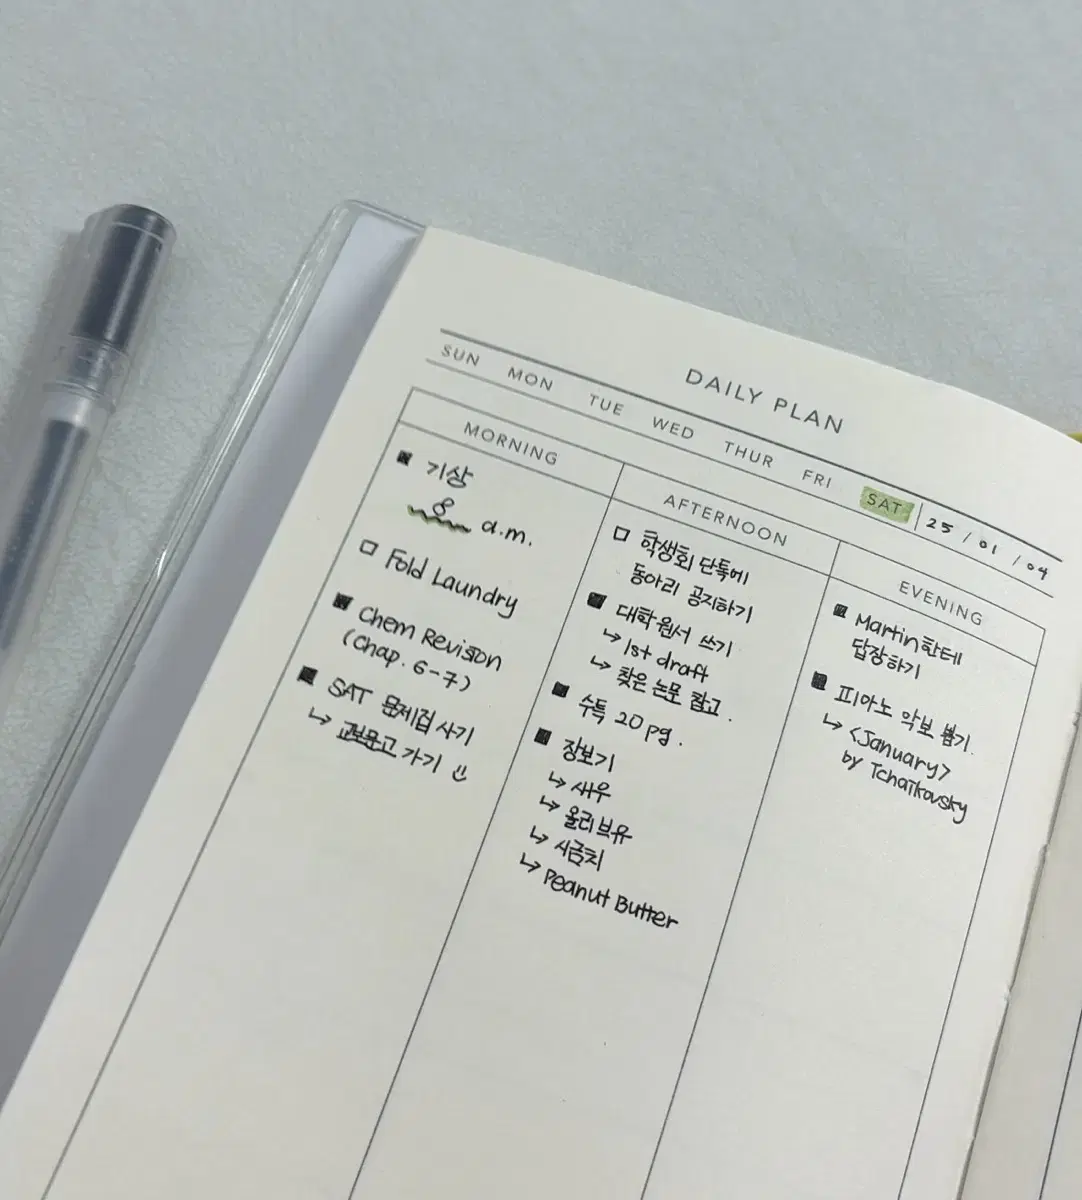 DAILY PLAN
SUN MON TUE WED THUR FRI SAT 25 / 01 / 04
MORNING
기상
8 a.m.
Fold Laundry
Chem Revision
(Chap. 6-7)
SAT 문제집 사기
↳ 교보문고 가기
AFTERNOON
학생회 단톡에
동아리 공지하기
대학원서 쓰기
↳ 1st draft
↳ 찾은 논문 참고.
수특 20 pg.
장보기
↳ 새우
↳ 올리브유
↳ 시금치
↳ Peanut Butter
EVENING
Martin한테
답장하기
피아노 악보 뽑기.
↳ <January>
by Tchaikovsky